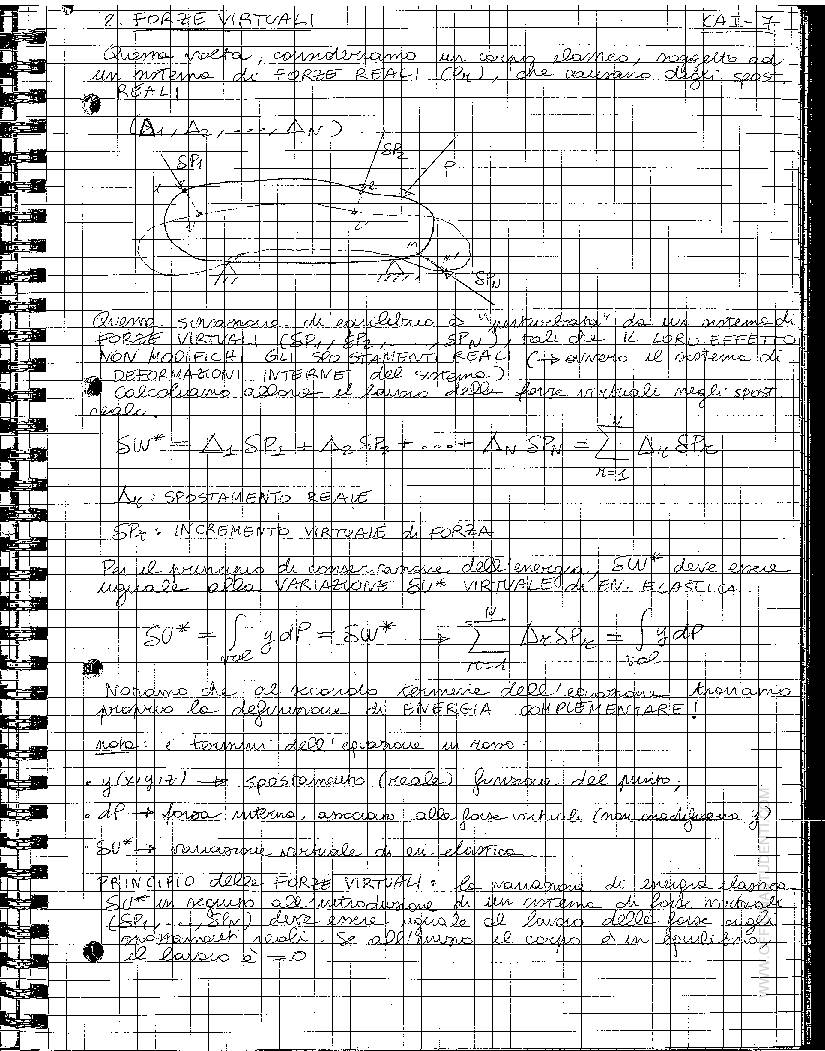 2. FORZE VIRTUALI CAI-7
Questa volta, consideriamo un corpo elastico, soggetto ad
un sistema di FORZE REALI (Pr), che causano degli spost.
REALI
(Δ1, Δ2, ...., ΔN)
δP1 δP2 P
1 2
1' 2' n n'
δPN
Questa situazione di equilibrio è "perturbata" da un sistema di
FORZE VIRTUALI (δP1, δP2, ..., δPN), tali che IL LORO EFFETTO
NON MODIFICHI GLI SPOSTAMENTI REALI (→ ovvero il sistema di
DEFORMAZIONI INTERNE del sistema.)
Calcoliamo allora il lavoro delle forze virtuali negli spost
reali.
δW* = Δ1 δP1 + Δ2 δP2 + ....+ ΔN δPN = Σ_{r=1}^{N} Δr δPr
Δr : SPOSTAMENTO REALE
δPr : INCREMENTO VIRTUALE di FORZA
Per il principio di conservazione dell'energia, δW* deve essere
uguale alla VARIAZIONE δU* VIRTUALE di EN. ELASTICA.
δU* = ∫_{vol} y dP = δW* → Σ_{r=1}^{N} Δr δPr = ∫_{vol} y dP
Notiamo che al secondo termine dell'equazione troviamo
proprio la definizione di ENERGIA COMPLEMENTARE!
nota: i termini dell'equazione in rosso:
• y(x,y,z) → spostamento (reale) funzione del punto;
• dP → forza interna, associata alle forze virtuali (non modificano y)
• δU* → variazione virtuale di en. elastica
PRINCIPIO delle FORZE VIRTUALI: la variazione di energia elastica
δU* in seguito all'introduzione di un sistema di forze virtuali
(δP1, ..., δPN) deve essere uguale al lavoro delle forze sugli
spostamenti reali. Se all'inizio il corpo è in equilibrio
il lavoro è = 0